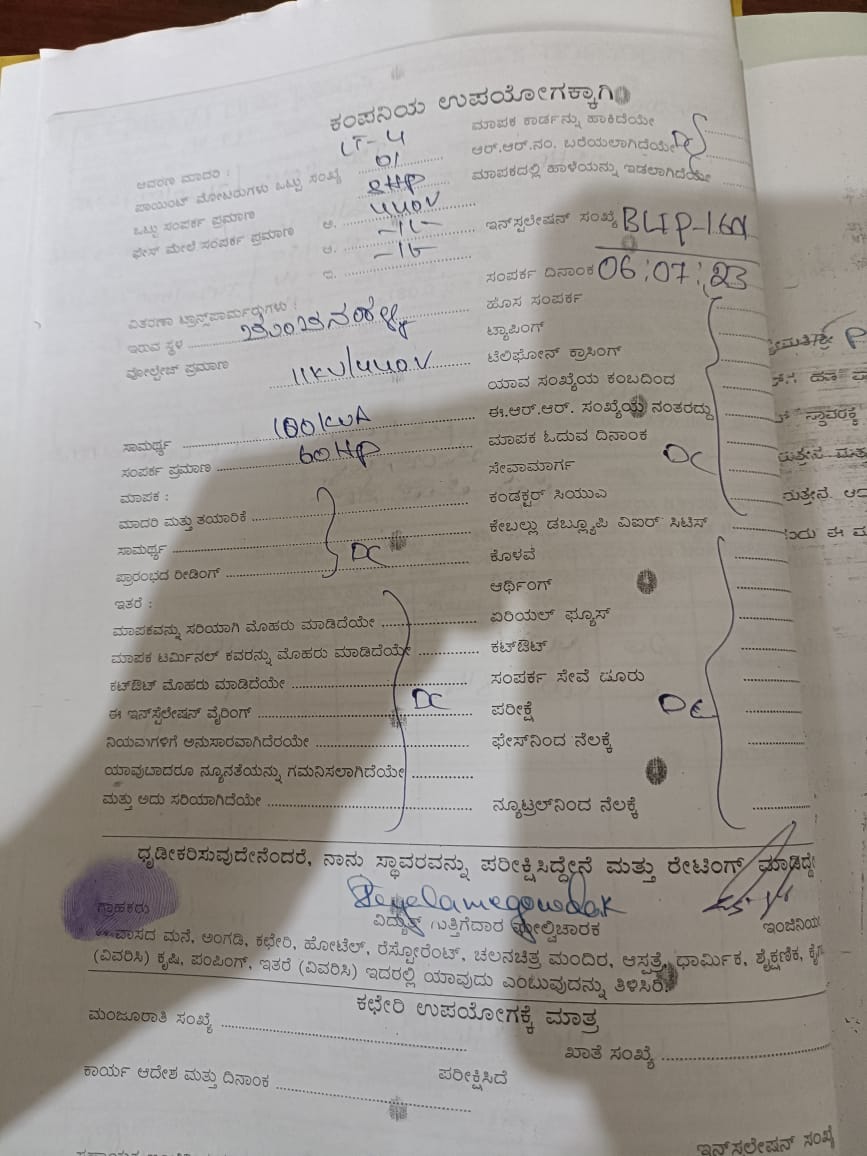 ಕಂಪನಿಯ ಉಪಯೋಗಕ್ಕಾಗಿ
ಮಾಪಕ ಕಾರ್ಡನ್ನು ಹಾಕಿದೆಯೇ
ಆವರಣ ಮಾದರಿ : LT-4
ಆರ್.ಆರ್.ನಂ. ಬರೆಯಲಾಗಿದೆಯೇ
ಪಾಯಿಂಟ್ ಮೋಟರುಗಳು ಒಟ್ಟು ಸಂಖ್ಯೆ 01
ಮಾಪಕದಲ್ಲಿ ಹಾಳೆಯನ್ನು ಇಡಲಾಗಿದೆಯೇ
ಒಟ್ಟು ಸಂಪರ್ಕ ಪ್ರಮಾಣ 8HP
ಫೇಸ್ ಮೇಲೆ ಸಂಪರ್ಕ ಪ್ರಮಾಣ ಅ. 440V
ಇನ್‌ಸ್ಟಲೇಷನ್ ಸಂಖ್ಯೆ
ಆ. -11-
ಇ.
ಸಂಪರ್ಕ ದಿನಾಂಕ 06:07:23
ವಿತರಣಾ ಟ್ರಾನ್ಸ್‌ಫಾರ್ಮರುಗಳು :
ಹೊಸ ಸಂಪರ್ಕ
ಇರುವ ಸ್ಥಳ
ಟ್ಯಾಪಿಂಗ್
ವೋಲ್ಟೇಜ್ ಪ್ರಮಾಣ 11KV/440V
ಟೆಲಿಫೋನ್ ಕ್ರಾಸಿಂಗ್
ಯಾವ ಸಂಖ್ಯೆಯ ಕಂಬದಿಂದ
ಸಾಮರ್ಥ್ಯ 100KVA
ಈ.ಆರ್.ಆರ್. ಸಂಖ್ಯೆಯ ನಂತರದ್ದು
ಸಂಪರ್ಕ ಪ್ರಮಾಣ 60HP
ಮಾಪಕ ಓದುವ ದಿನಾಂಕ DC
ಮಾಪಕ :
ಸೇವಾಮಾರ್ಗ
ಮಾದರಿ ಮತ್ತು ತಯಾರಿಕೆ
ಕಂಡಕ್ಟರ್ ಸಿಯುವಿ
ಸಾಮರ್ಥ್ಯ DC
ಕೇಬಲ್ಲು ಡಬ್ಲ್ಯೂಪಿ ವಿಐಆರ್ ಸಿಟಿಸ್
ಪ್ರಾರಂಭದ ರೀಡಿಂಗ್
ಕೊಳವೆ
ಇತರೆ :
ಅರ್ಥಿಂಗ್
ಮಾಪಕವನ್ನು ಸರಿಯಾಗಿ ಮೊಹರು ಮಾಡಿದೆಯೇ
ಏರಿಯಲ್ ಫ್ಯೂಸ್
ಮಾಪಕ ಟರ್ಮಿನಲ್ ಕವರನ್ನು ಮೊಹರು ಮಾಡಿದೆಯೇ
ಕಟ್‌ಔಟ್
ಕಟ್‌ಔಟ್ ಮೊಹರು ಮಾಡಿದೆಯೇ
ಸಂಪರ್ಕ ಸೇವೆ ದೂರು
ಈ ಇನ್‌ಸ್ಟಲೇಷನ್ ವೈರಿಂಗ್ DC
ಪರೀಕ್ಷೆ DC
ನಿಯಮಗಳಿಗೆ ಅನುಸಾರವಾಗಿದೆಯೇ
ಫೇಸ್‌ನಿಂದ ನೆಲಕ್ಕೆ
ಯಾವುದಾದರೂ ನ್ಯೂನತೆಯನ್ನು ಗಮನಿಸಲಾಗಿದೆಯೇ
ಮತ್ತು ಅದು ಸರಿಯಾಗಿದೆಯೇ
ನ್ಯೂಟ್ರಲ್‌ನಿಂದ ನೆಲಕ್ಕೆ
ಧೃಡೀಕರಿಸುವುದೇನೆಂದರೆ, ನಾನು ಸ್ಥಾವರವನ್ನು ಪರೀಕ್ಷಿಸಿದ್ದೇನೆ ಮತ್ತು ರೇಟಿಂಗ್ ಮಾಡಿದ್ದೇ
ಗ್ರಾಹಕರು ವಿದ್ಯುತ್ ಗುತ್ತಿಗೆದಾರ ಮೇಲ್ವಿಚಾರಕ ಇಂಜಿನಿಯ
ವಾಸದ ಮನೆ, ಅಂಗಡಿ, ಕಛೇರಿ, ಹೋಟೆಲ್, ರೆಸ್ಟೋರೆಂಟ್, ಚಲನಚಿತ್ರ ಮಂದಿರ, ಆಸ್ಪತ್ರೆ, ಧಾರ್ಮಿಕ, ಶೈಕ್ಷಣಿಕ, ಕೈಗ
(ವಿವರಿಸಿ) ಕೃಷಿ, ಪಂಪಿಂಗ್, ಇತರೆ (ವಿವರಿಸಿ) ಇದರಲ್ಲಿ ಯಾವುದು ಎಂಬುವುದನ್ನು ತಿಳಿಸಿರಿ.
ಕಛೇರಿ ಉಪಯೋಗಕ್ಕೆ ಮಾತ್ರ
ಮಂಜೂರಾತಿ ಸಂಖ್ಯೆ
ಖಾತೆ ಸಂಖ್ಯೆ
ಕಾರ್ಯ ಆದೇಶ ಮತ್ತು ದಿನಾಂಕ ಪರೀಕ್ಷಿಸಿದೆ
ಇನ್‌ಸಲೇಷನ್ ಸಂಖ್ಯೆ